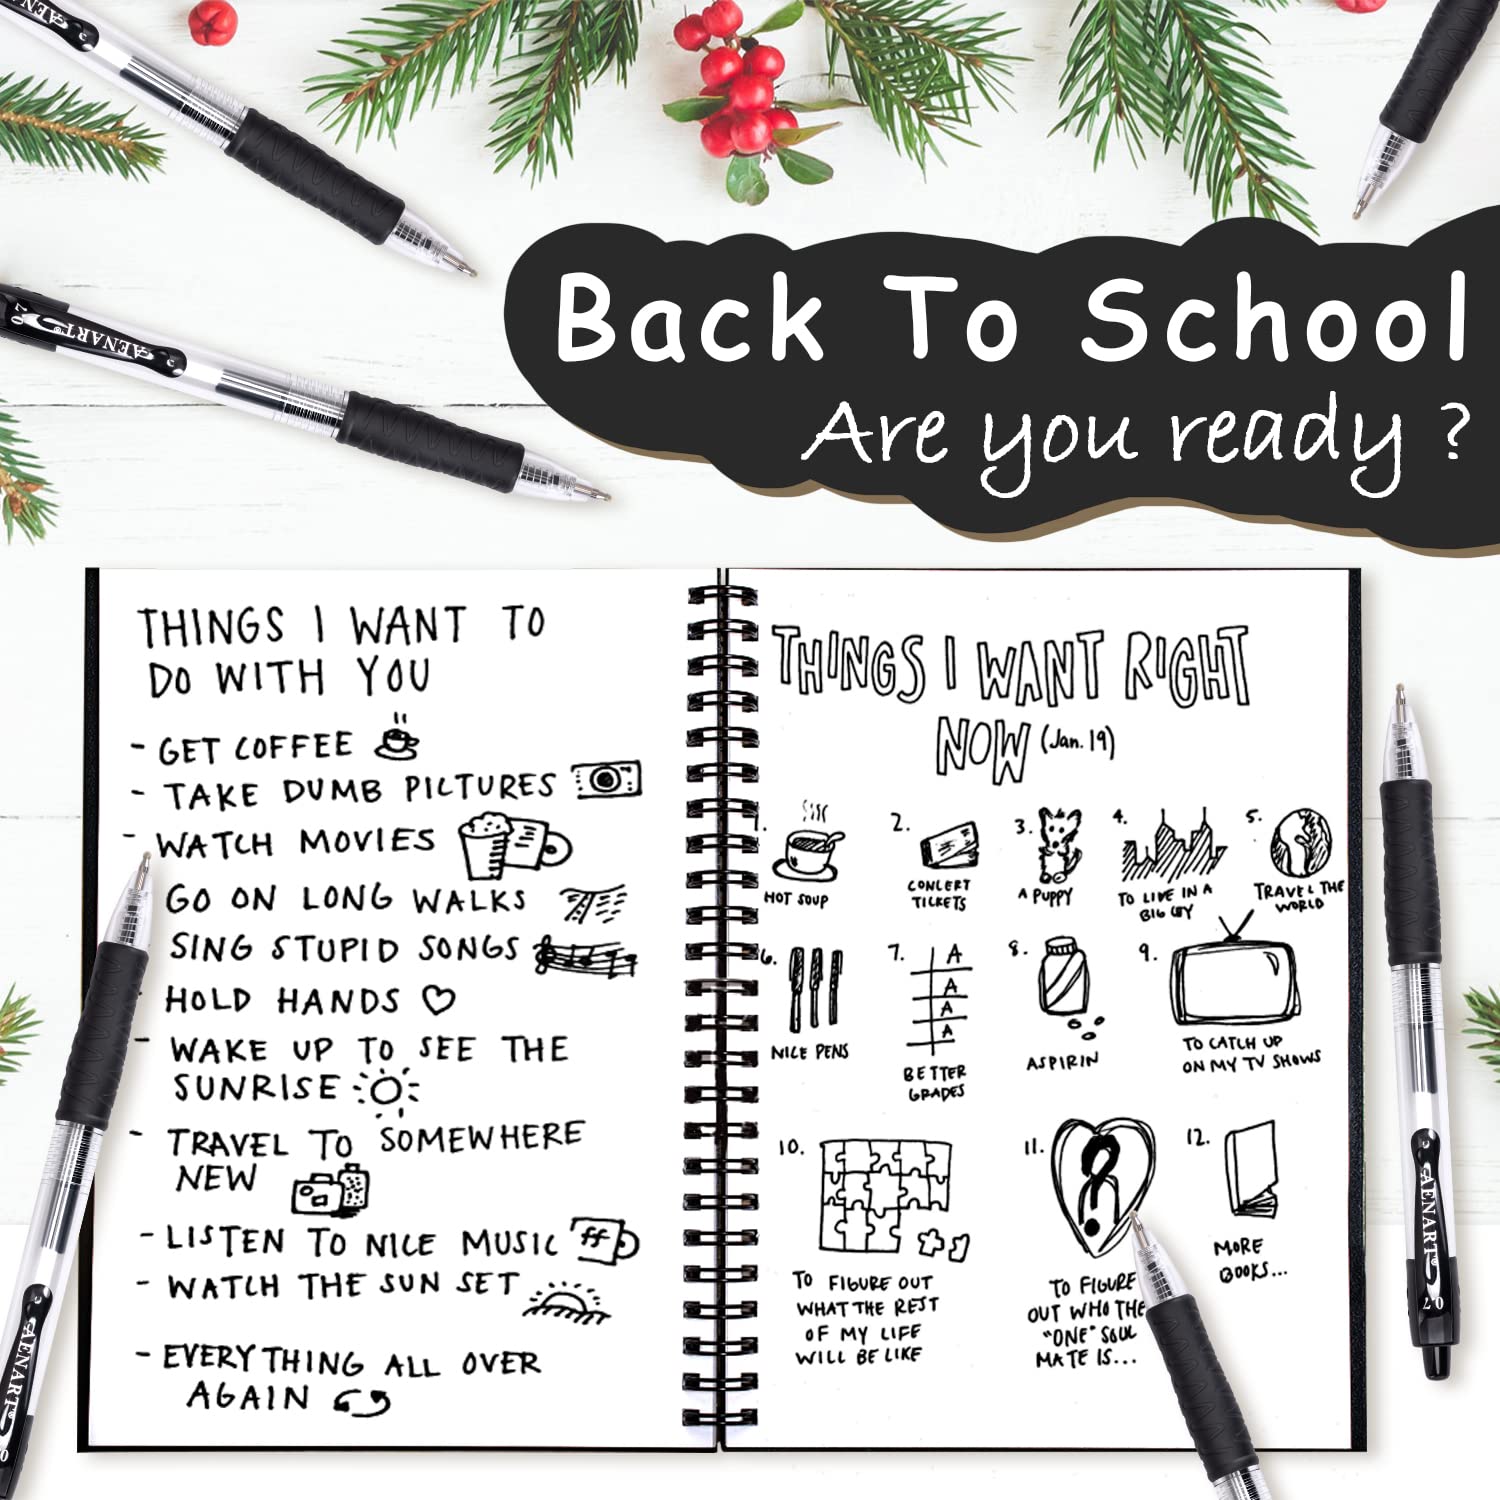 Back To School
Are you ready ?
AENART®
0.7
THINGS I WANT TO
DO WITH YOU
- GET COFFEE
- TAKE DUMB PICTURES
- WATCH MOVIES
GO ON LONG WALKS
SING STUPID SONGS
HOLD HANDS
- WAKE UP TO SEE THE
SUNRISE
- TRAVEL TO SOMEWHERE
NEW
- LISTEN TO NICE MUSIC
ff
- WATCH THE SUN SET
- EVERYTHING ALL OVER
AGAIN
THINGS I WANT RIGHT
NOW (Jan. 19)
1.
HOT SOUP
2.
CONCERT
TICKETS
3.
A PUPPY
4.
TO LIVE IN A
BIG CITY
5.
TRAVEL THE
WORLD
6.
NICE PENS
7.
A
A
A
A
BETTER
GRADES
8.
ASPIRIN
9.
TO CATCH UP
ON MY TV SHOWS
10.
TO FIGURE OUT
WHAT THE REST
OF MY LIFE
WILL BE LIKE
11.
?
TO FIGURE
OUT WHO THE
"ONE" SOUL
MATE IS...
12.
MORE
BOOKS...
AENART®
0.7
AENART®
0